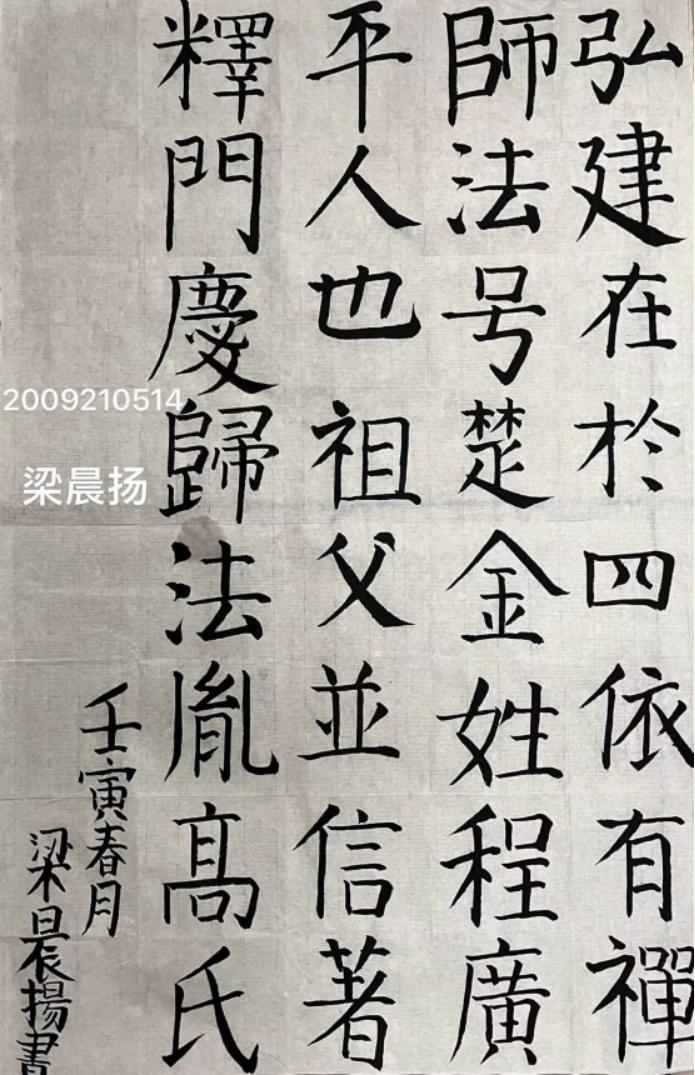 弘建在於四依有禪
師法号楚金姓程廣
平人也祖父並信著
釋門慶歸法胤高氏
壬寅春月
梁晨揚書
2009210514
梁晨扬